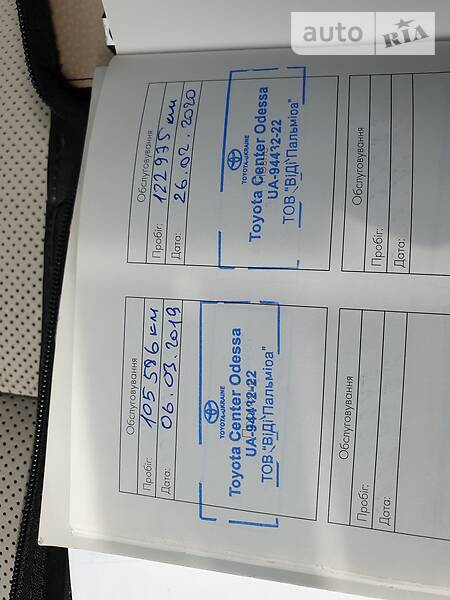 auto RIA
Обслуговування
Пробіг: 105 586 км
Дата: 06.03.2019
TOYOTA-UKRAINE
Toyota Center Odessa
UA-94432-22
ТОВ "ВіДі"Пальміра"
Обслуговування
Пробіг: 122 975 км
Дата: 26.02.2020
TOYOTA-UKRAINE
Toyota Center Odessa
UA-94432-22
ТОВ "ВіДі"Пальміра"
Обслуговування
Пробіг:
Дата:
Обслуговування
Пробіг:
Дата: